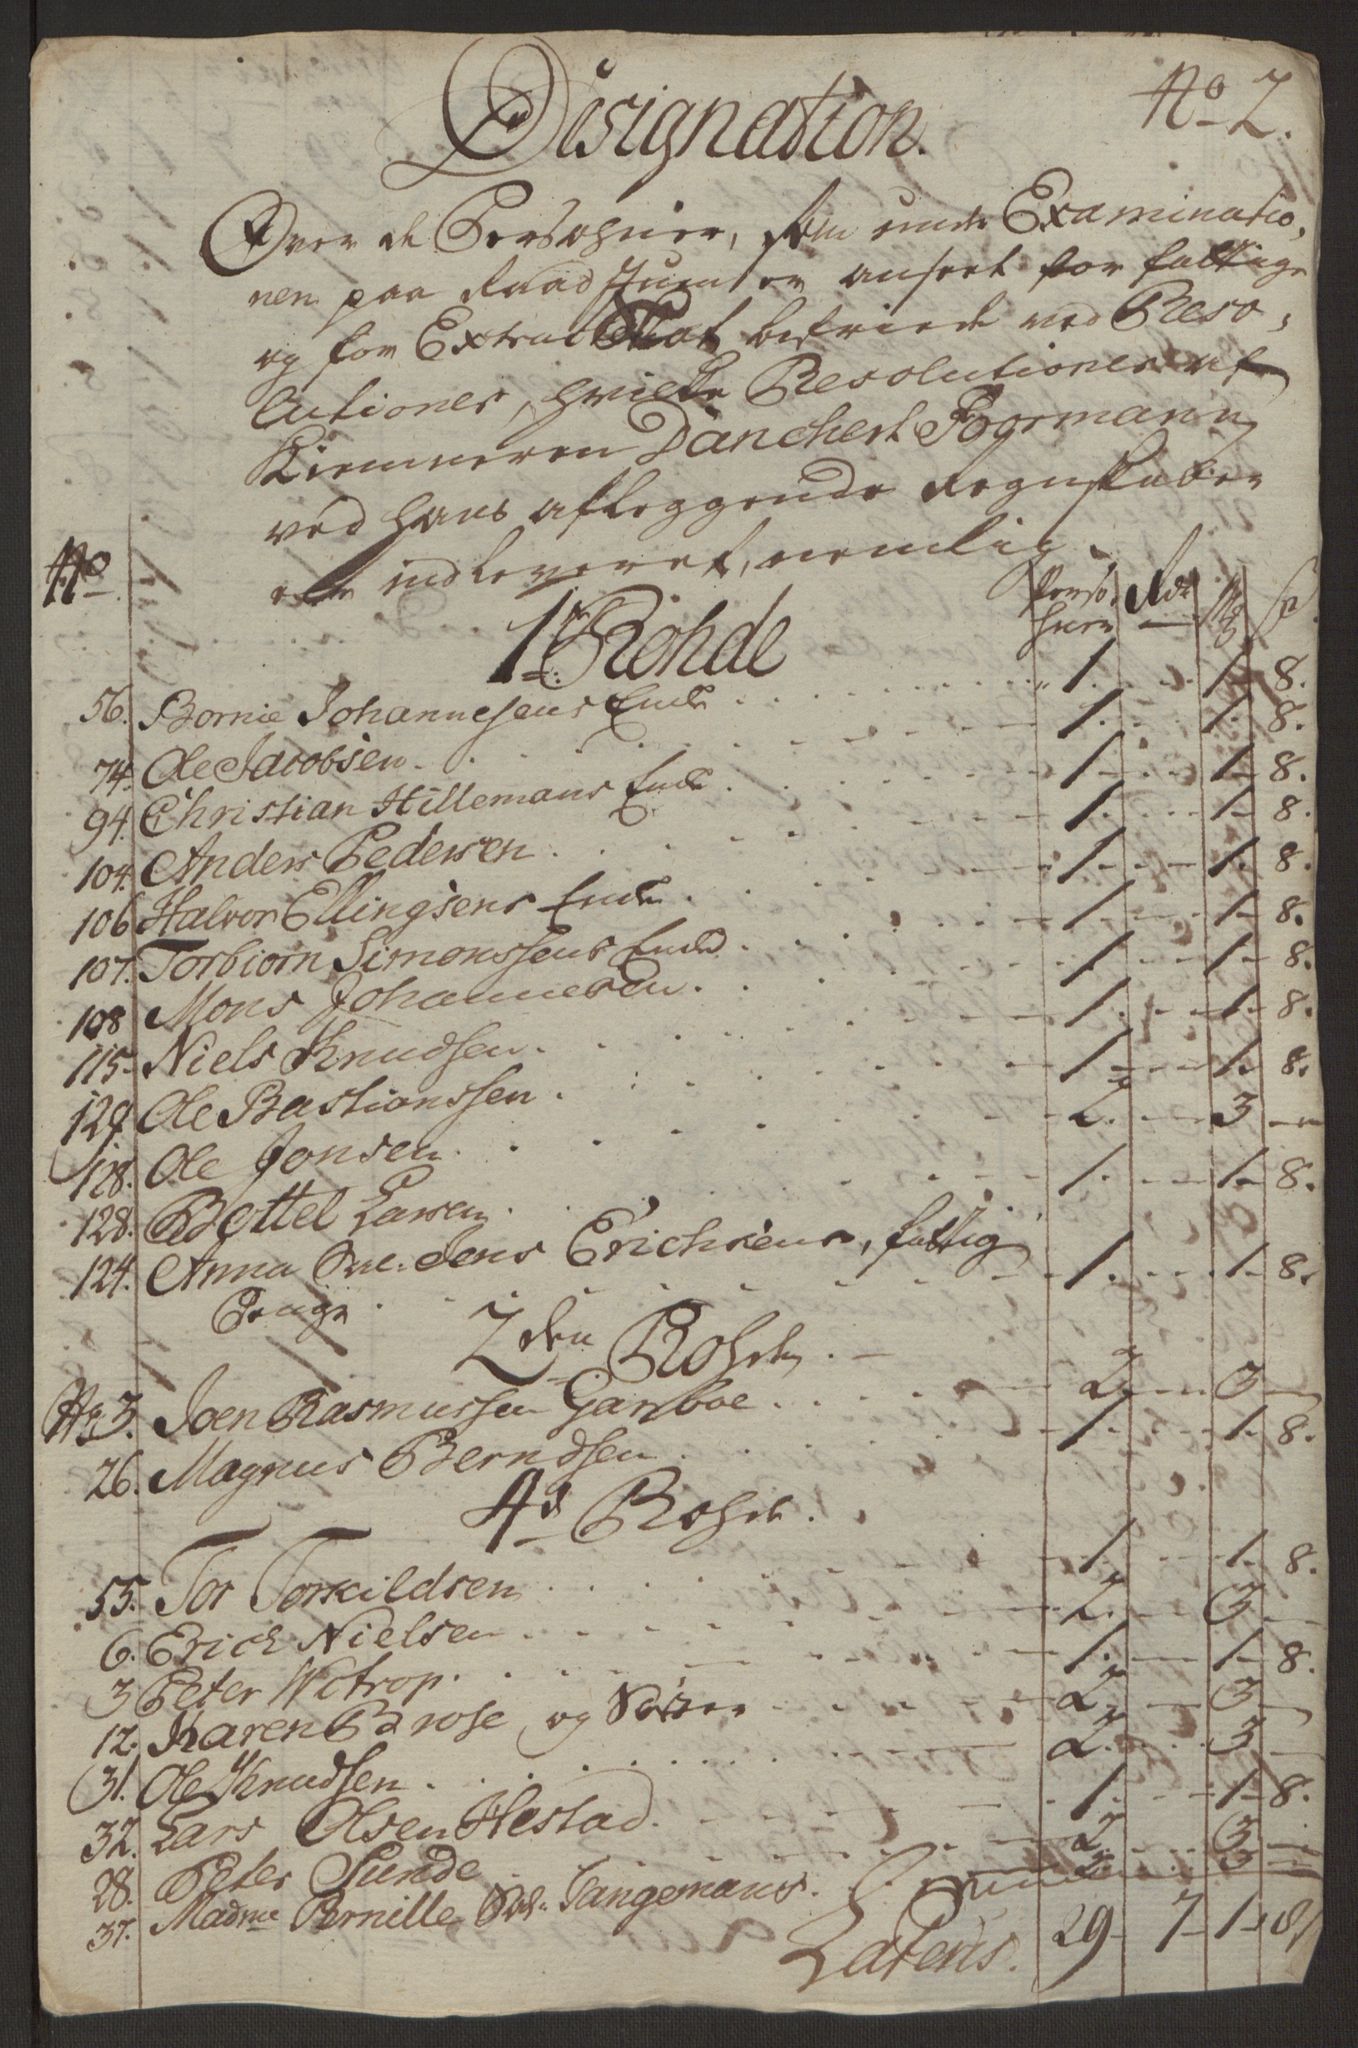 No 2.
Designation.
Over de Persohner, som under Examinatio-
nen paa Raadstuen er anseet for fattige
og for Extra Skat befriede ved Reso-
lutioner, hvilke Resolutioner af
Kiemneren Danchert Fogrmann
ved hans afleggende Regnskaber
er indleveret, nemlig.
No Persohner Rdr Mk s
1te Rohde
56. Bornie Johannesens Enke 1. 1. 8.
74. Ole Jacobsen 1. 1. 8.
94. Christian Hillemans Enke 1 1 8.
104. Anders Pedersen 1. 1. 8.
106 Halvor Ellingsens Enke 1. 1. 8.
107. Torbiørn Simonssens Enke 1 1 8.
108 Mons Johannesen 1 1 8.
115. Niels Knudsen 1. 1. 8.
127 Ole Bastianssen 1 1. 8.
128. Ole Jonsen 2. 3
128. Bottel Larsen 1. 1 8.
124. Anna Sal. Jens Erichsens, fattig
Penge 1. 1 8.
2den Rohde
No 3. Joen Rasmussen Garboe 2 3
26. Magnus Berndsen 1. 1. 8.
4de Rohde.
55. Tor Torkildsen 1. 1. 8.
6. Erich Nielsen 2. 3
3 Peter Wotrop. 1. 1 8.
12. Karen Barose og Søster 2 3
31. Ole Knudsen 2. 3
32. Lars Olsen Hestad 1 1 8.
28. Peter Sunde 2 3
37. Madme Pernille Sal. Tangemans. 2 3
Latens. 29 7 1 8